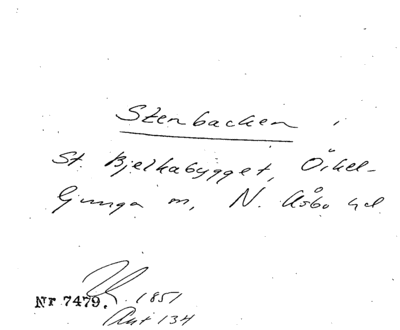 Stenbacken i
St. Bjelkabygget, Örkel-
ljunga sn, N. Åsbo hd
Nr 7479. 1851
Ant 134